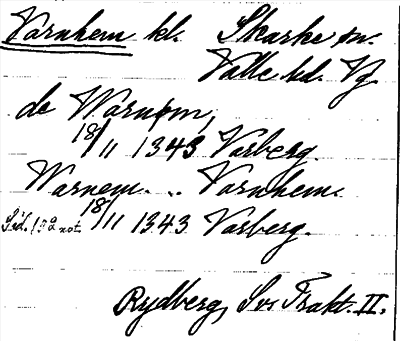 Varnhem kl. Skarke sn.
Valle hd. Vg.
de Warnem,
18/11 1343 Varberg.
Warnem. .. Varnhem.
18/11 1343 Varberg.
Rydberg, Sv. Trakt. II.